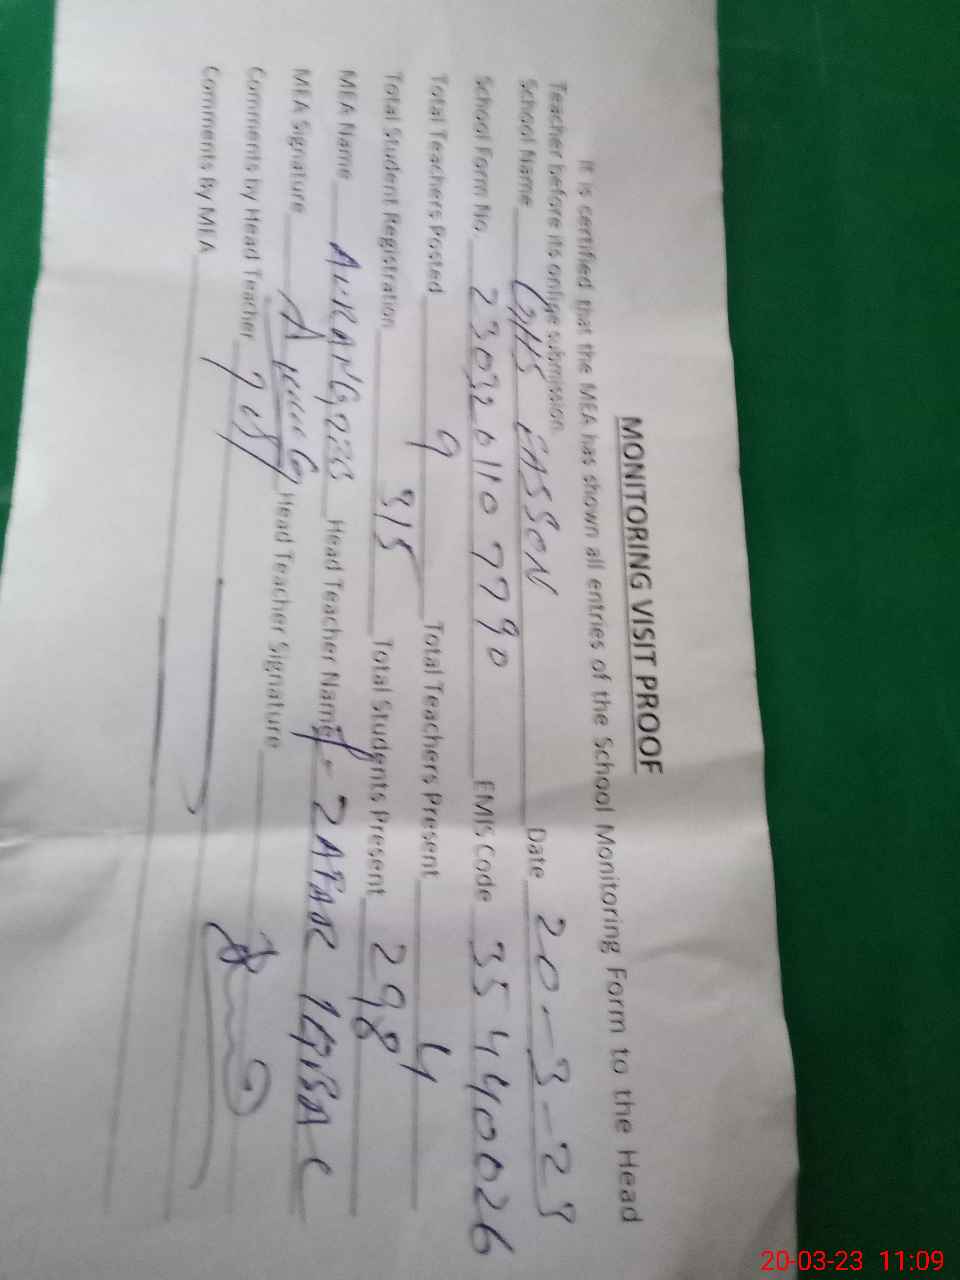 MONITORING VISIT PROOF
It is certified that the MEA has shown all entries of the School Monitoring Form to the Head
Teacher before its online submission.
School Name GHS FASSON Date 20-3-23
School Form No. 230320110 7790 EMIS Code 35440026
Total Teachers Posted 9 Total Teachers Present 4
Total Student Registration 315 Total Students Present 298
MEA Name AURANGZEB Head Teacher Name ZAFAR IQBAL
MEA Signature Head Teacher Signature
Comments by Head Teacher
Comments By MEA
20-03-23 11:09